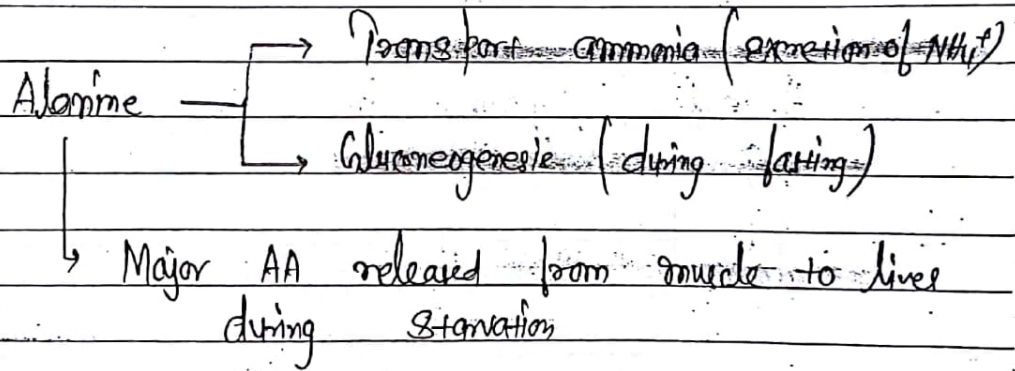 Transport ammonia (excretion of NH4+)
Alanine
Gluconeogenesis (during fasting)
Major AA released from muscle to liver
during starvation